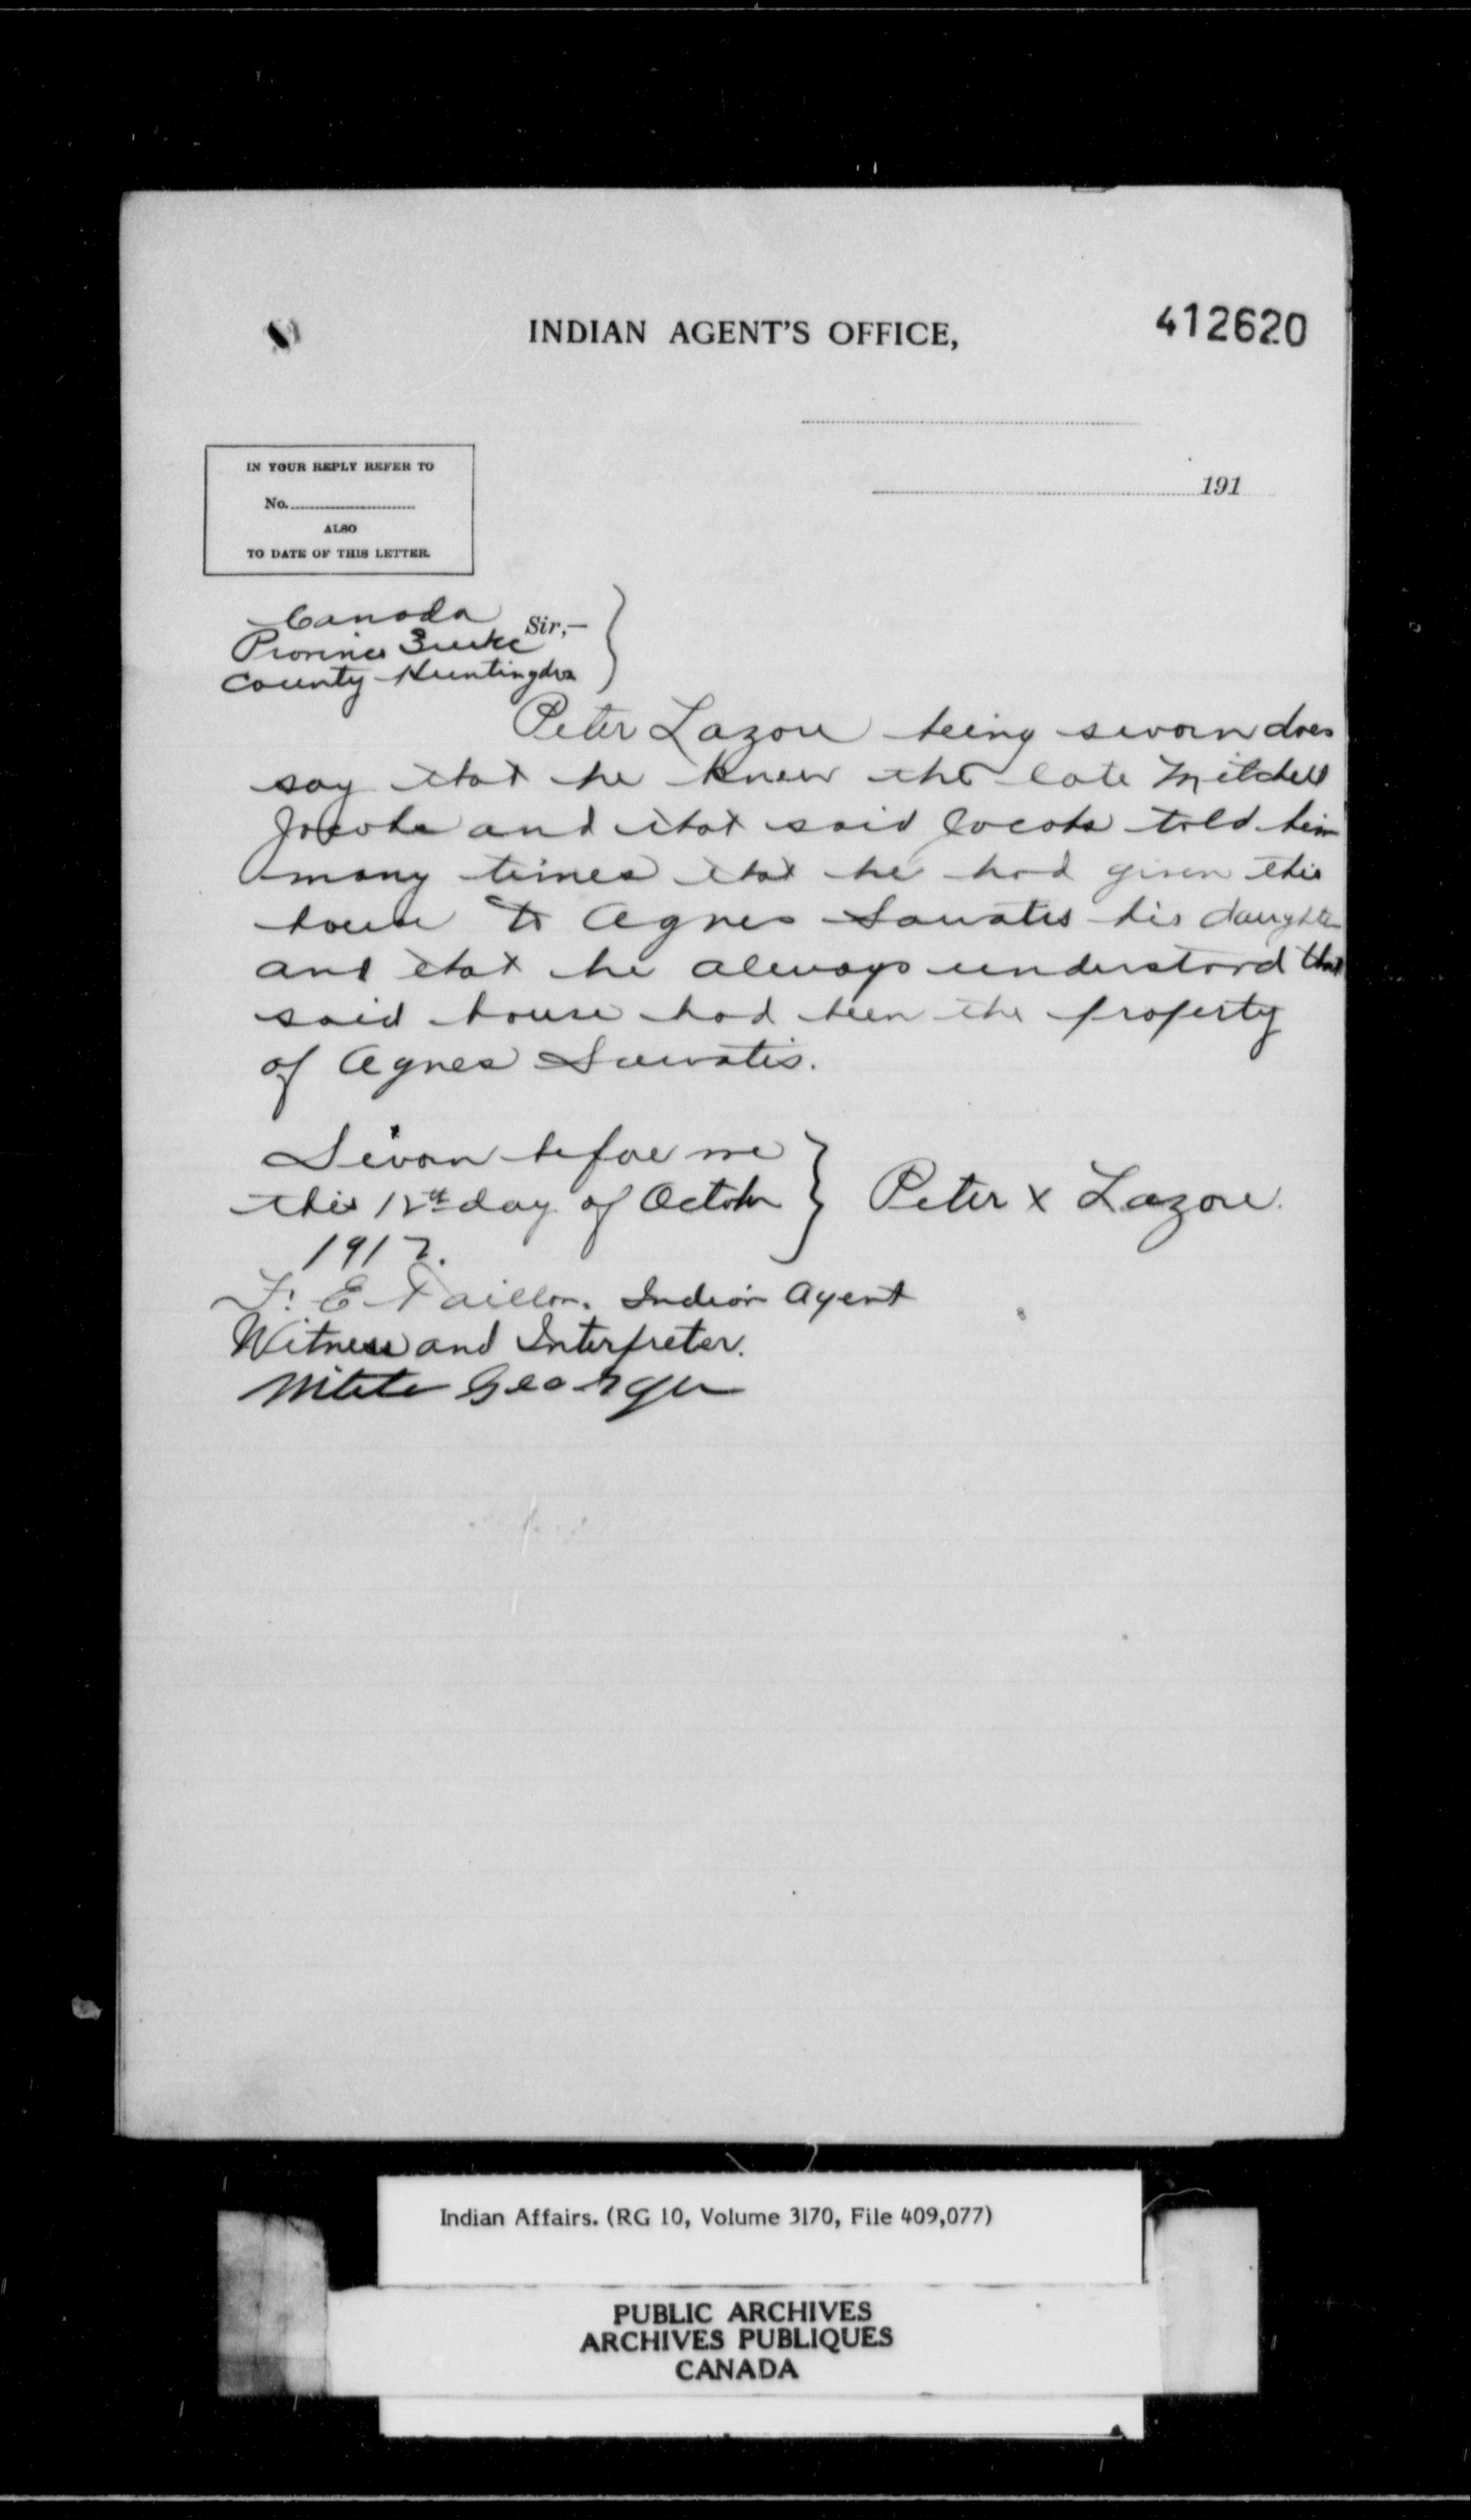 INDIAN AGENT'S OFFICE,
412620
191
IN YOUR REPLY REFER TO
No.
ALSO
TO DATE OF THIS LETTER.
Canada
Sir,—
Province Quebec
County Huntingdon
Peter Lazore being sworn does
say that he knew the late Mitchell
Jacobs and that said Jacobs told him
many times that he had given this
house to Agnes Sawatis his daughter
and that he always understood that
said house had been the property
of Agnes Sawatis.
Sworn before me
this 12th day of October
1912.
Peter x Lazore.
F. E. Taillon. Indian Agent
Witness and Interpreter.
George
Indian Affairs. (RG 10, Volume 3170, File 409,077)
PUBLIC ARCHIVES
ARCHIVES PUBLIQUES
CANADA